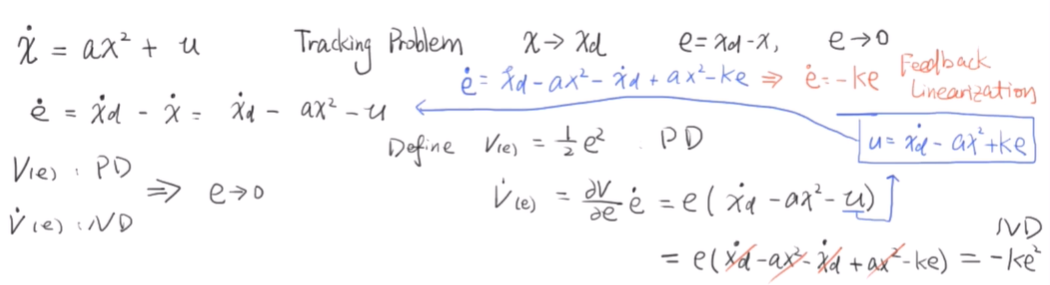 ẋ = ax² + u Tracking Problem x → xd e = xd - x, e → 0
ė = ẋd - ax² - ẋd + ax² - ke ⇒ ė = -ke Feedback Linearization
ė = ẋd - ẋ = ẋd - ax² - u
u = ẋd - ax² + ke
Define V(e) = ½e² . PD
V(e) : PD
V̇(e) : ND
⇒ e → 0
V̇(e) = ∂V/∂e ė = e( ẋd - ax² - u)
= e(ẋd - ax² - ẋd + ax² - ke) = -ke²
ND